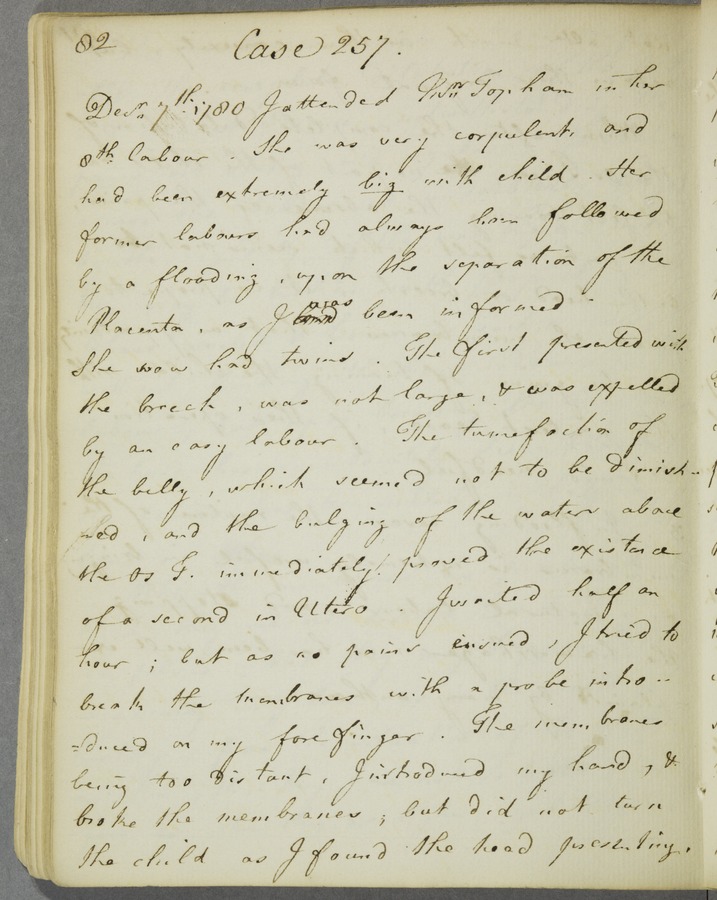 82 Case 257.
Decr. 7th. 1780 I attended Mrs Topham in her
8th. labour. She was very corpulent, and
had been extremely big with child. Her
former labours had always been followed
by a flooding, upon the separation of the
Placenta, as I was been informed.
She now had twins. The first presented with
the breech, was not large, & was expelled
by an easy labour. The tumefaction of
the belly, which seemed not to be dimish-
ned, and the bulging of the waters above
the Os T. immediately proved the existence
of a second in Utero. I waited half an
hour; but as no pains ensued, I tried to
break the membranes with a probe intro--
=duced on my fore finger. The membranes
being too distant, I introduced my hand, &
broke the membranes; but did not turn
the child as I found the head presenting.